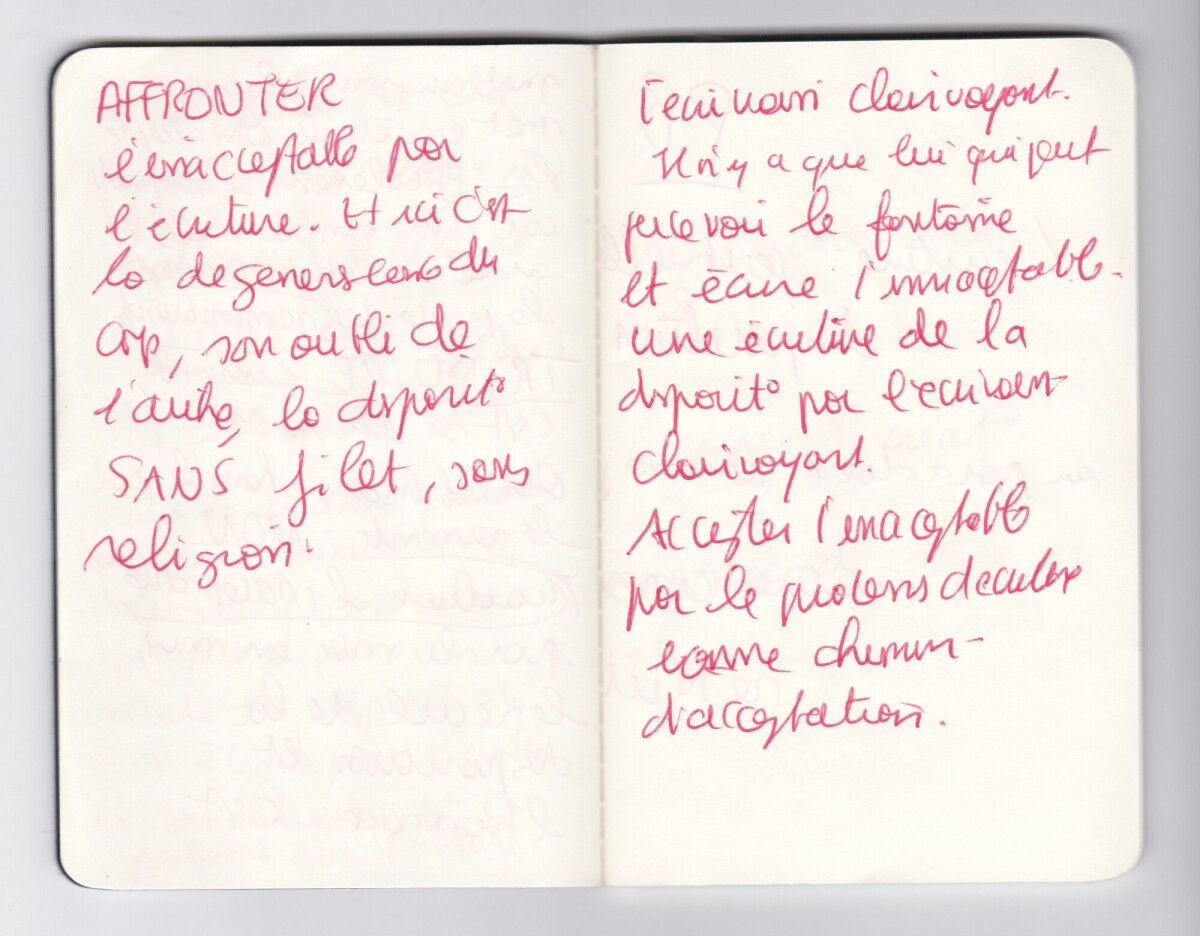 AFFRONTER
l'inacceptable par
l'écriture. Et ici c'est
la degenerescence du
corp, son oubli de
l'autre, la disparito
SANS filet, sans
religion.
l'ecrivain clairvoyant.
Il n'y a que lui qui peut
percevoir le fantôme
et écrire l'innaceptable.
une écriture de la
disparito par l'ecrivain
clairvoyant.
Accepter l'inaceptable
par le
comme chemin
d'acceptation.